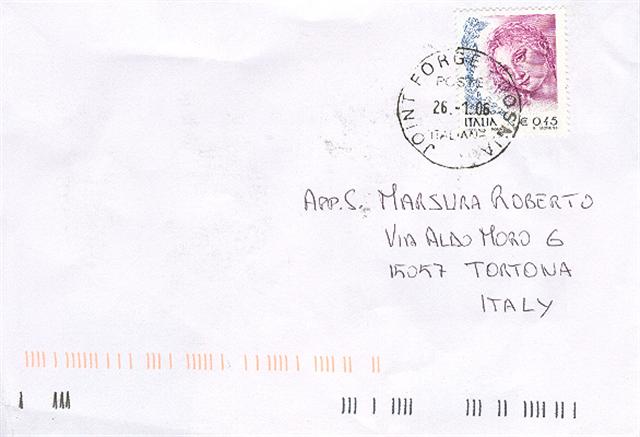 JOINT FORGE BOSNIA
POSTE
26.-1.06
ITALIANE
ITALIA
€ 0,45
APP.S. MARSURA ROBERTO
VIA ALDO MORO 6
15057 TORTONA
ITALY